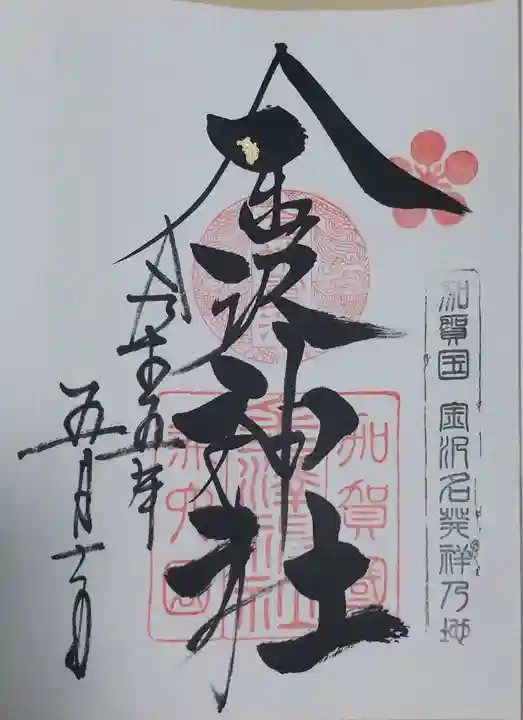 加賀国 金沢名発祥乃地
金沢神社
令和五年
五月十一日
加賀國
金澤神社